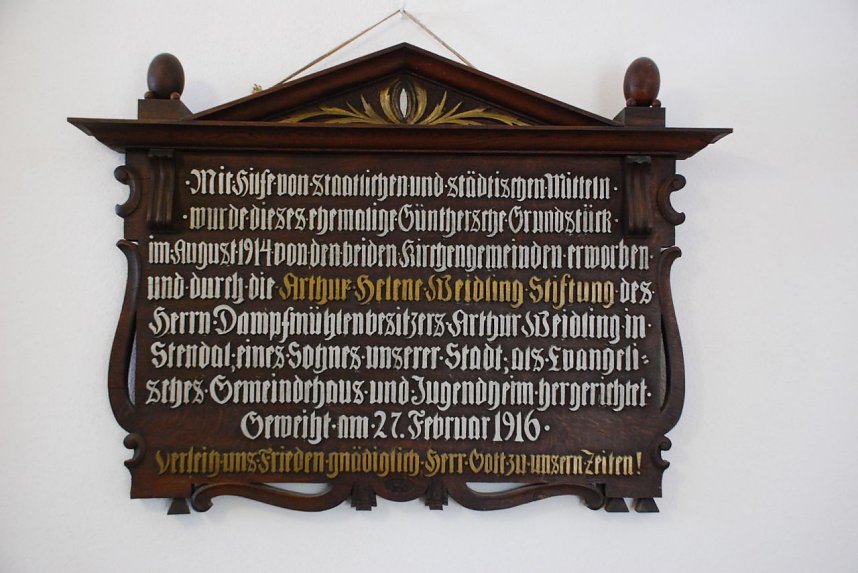 ·Mit·Hilfe·von·staatlichen·und·städtischen·Mitteln·
·wurde·dieses·ehematige·Günthersche·Grundstück·
im·August·1914·von·den·beiden·Kirchengemeinden·erworben·
und·durch·die·Arthur·Helene·Weidling·Stiftung·des
Herrn·Dampfmühlenbesitzers·Arthur·Weidling·in·
Stendal,·eines·Sohnes·unserer·Stadt,·als·Evangeli-
sches·Gemeindehaus·und·Jugendheim·hergerichtet·
Geweiht·am·27.Februar·1916·
Verleih·uns·Frieden·gnädiglich·Herr·Gott·zu·unsern·Zeiten!